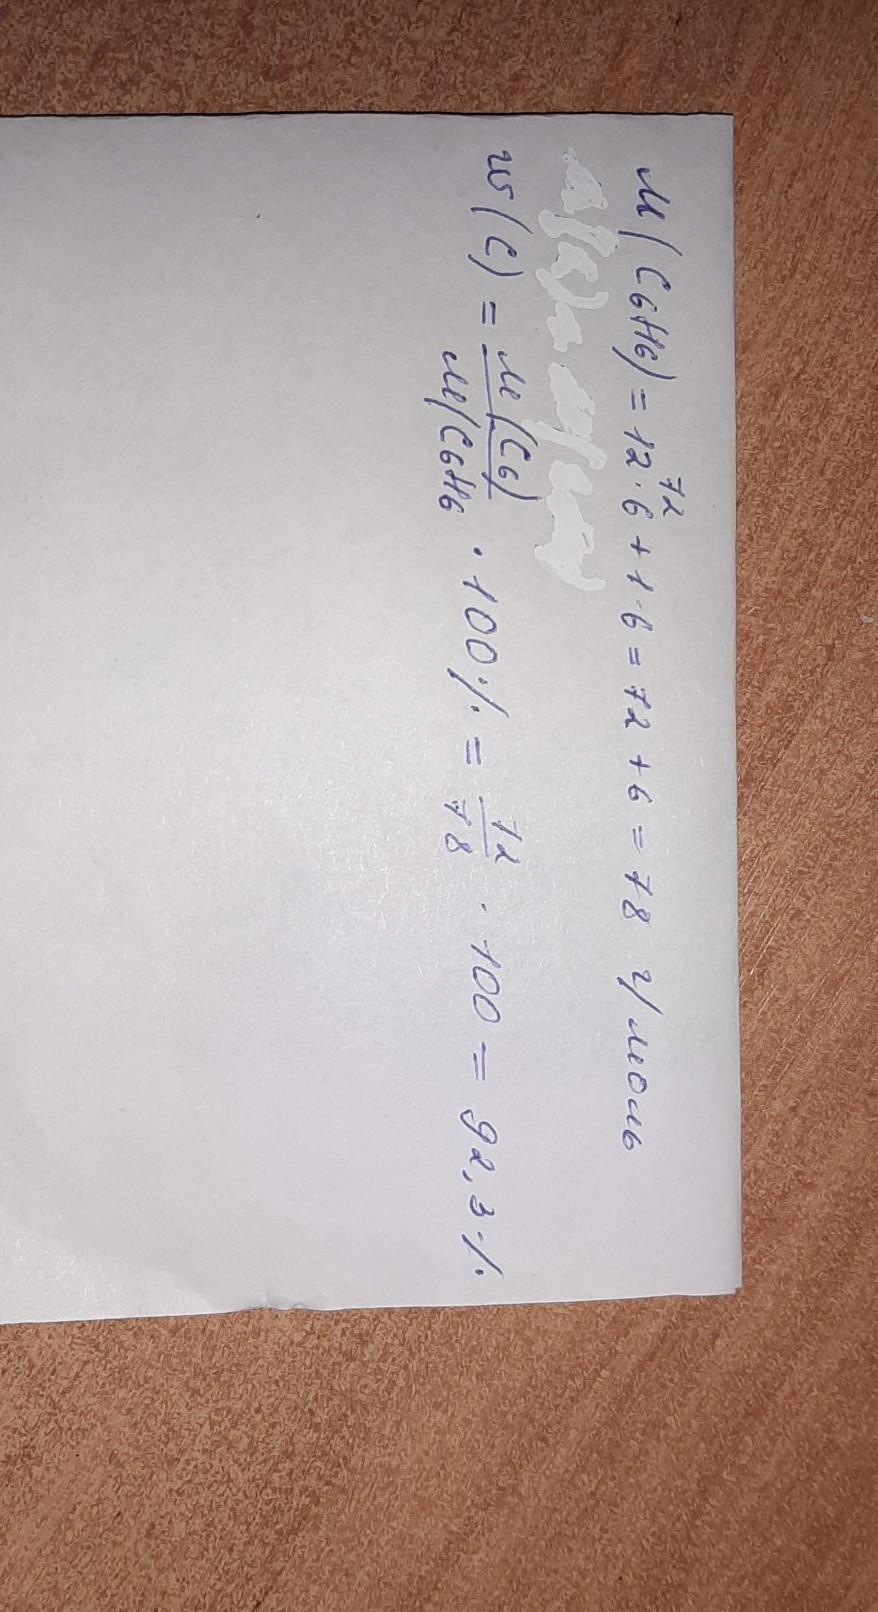 M(C6H6) = 12·6 + 1·6 = 72 + 6 = 78 г/моль
72
w(C) = M(C6) / M(C6H6 · 100% = 72 / 78 · 100 = 92,3%